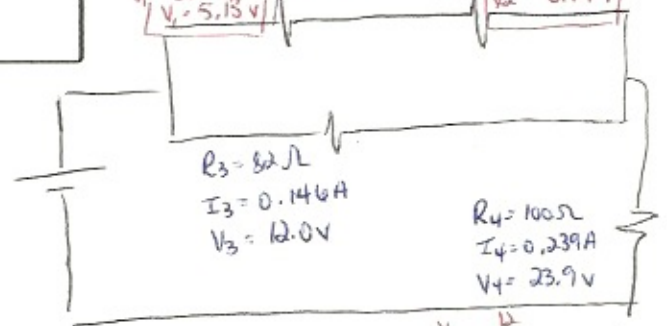 V₁ = 5.13 V
R₃ = 82 Ω
I₃ = 0.146A
V₃ = 12.0V
R₄ = 100Ω
I₄ = 0.239A
V₄ = 23.9 V